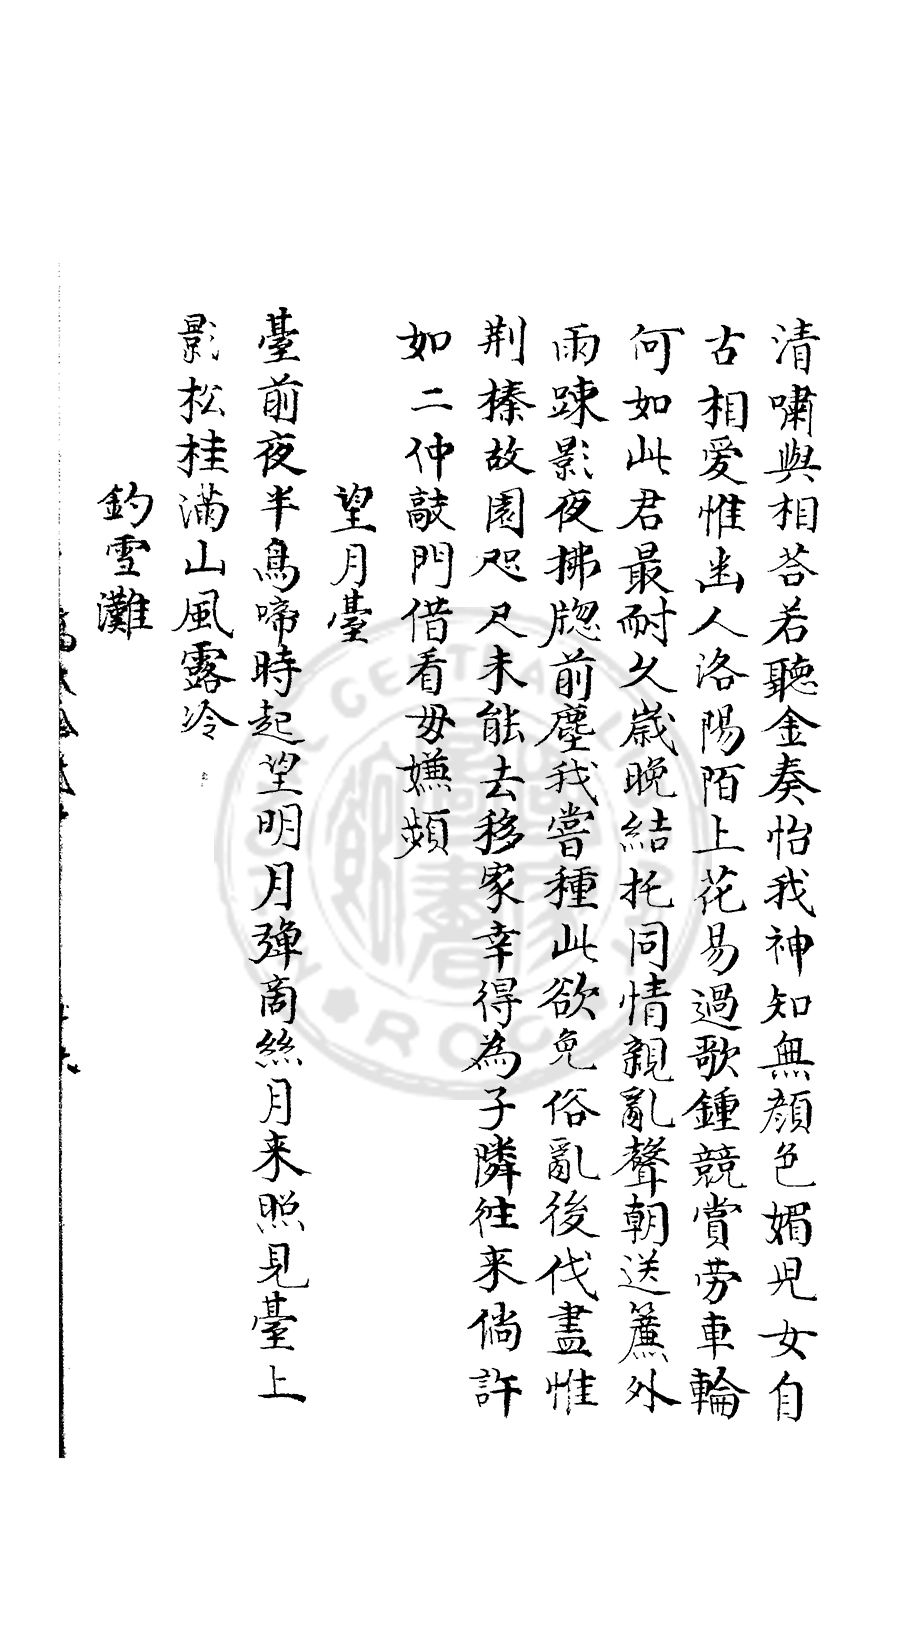 清嘯與相荅若聽金奏怡我神知無顏色媚児女自
古相愛惟幽人洛陽陌上花易過歌鍾競賞勞車輪
何如此君最耐久歲晚結托同情親亂聲朝送簾外
雨踈影夜拂牕前塵我嘗種此欲免俗亂後伐盡惟
荆榛故園咫尺未能去移家幸得為子隣徃来倘許
如二仲敲門借看毋嫌頻
望月臺
臺前夜半鳥啼時起望明月彈商絲月来照見臺上
影松桂滿山風露冷
釣雪灘